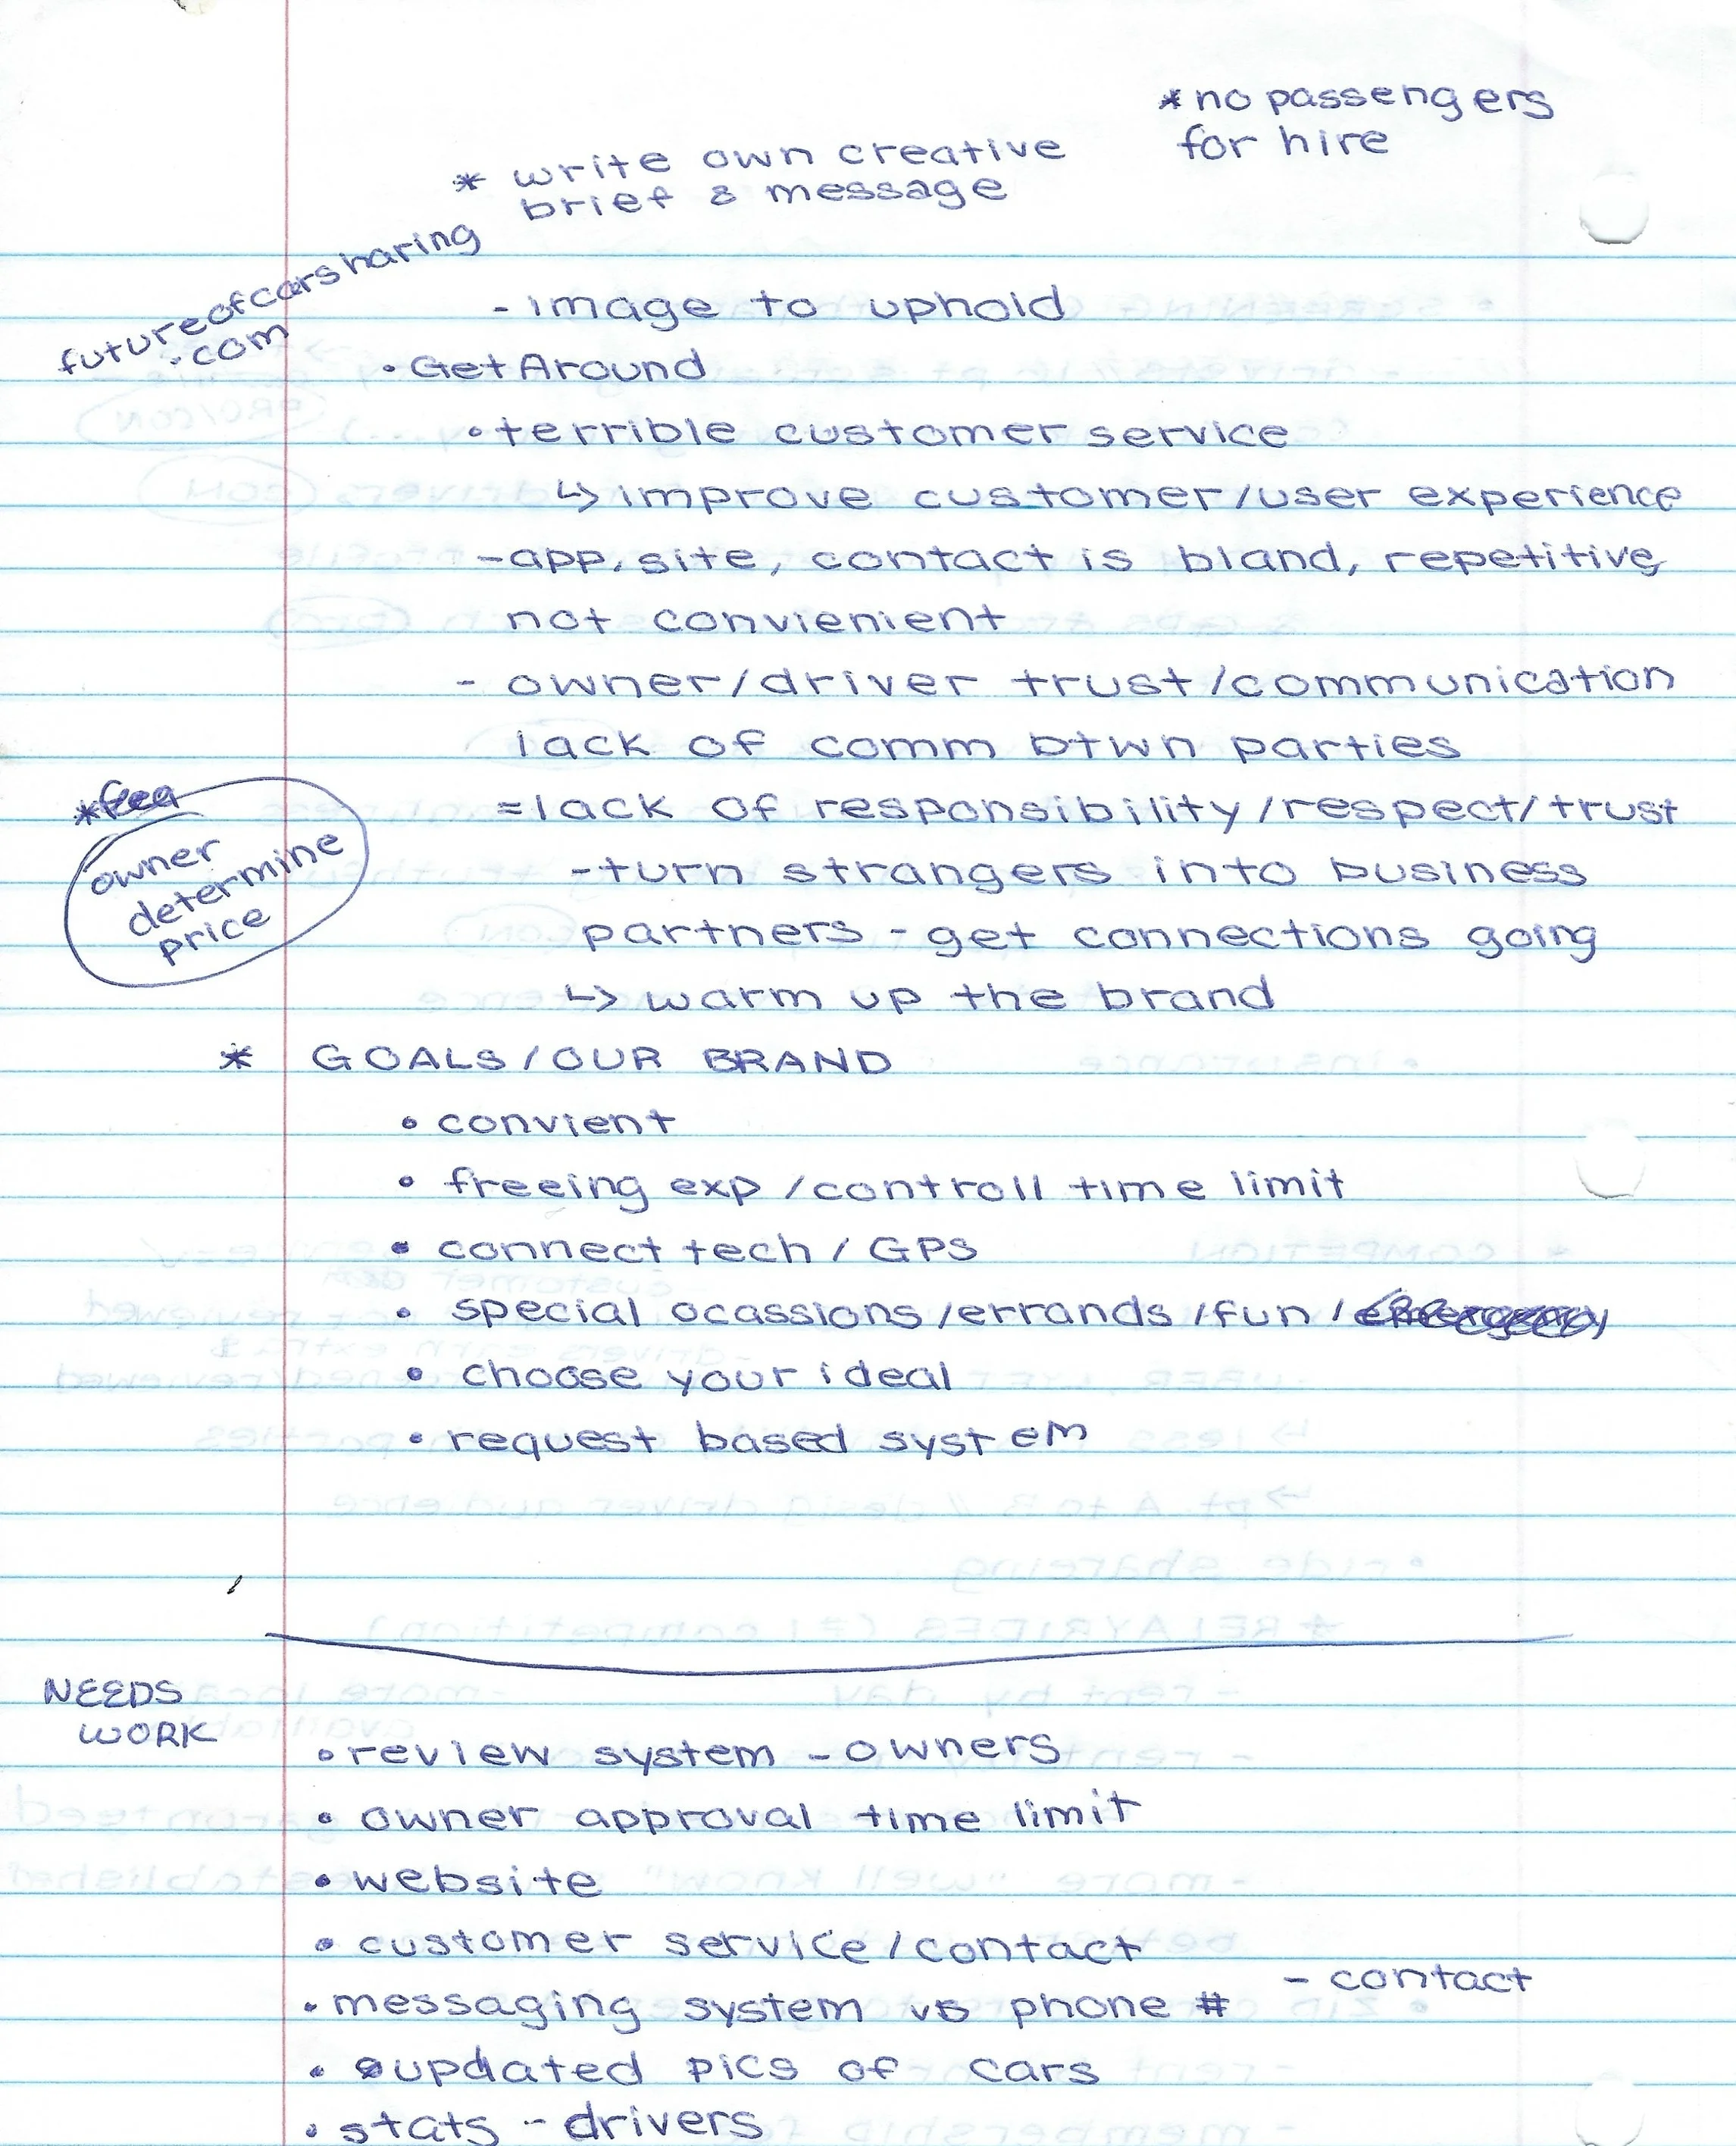 *no passengers
for hire
* write own creative
brief & message
futureofcarsharing
.com
- image to uphold
• GetAround
• terrible customer service
↳ improve customer/user experience
- app, site, contact is bland, repetitive
not convienient
- owner/driver trust/communication
lack of comm btwn parties
= lack of responsibility/respect/trust
*
owner
determine
price
- turn strangers into business
partners - get connections going
↳ warm up the brand
* GOALS/OUR BRAND
• convient
• freeing exp/controll time limit
• connect tech/GPS
• special ocassions/errands/fun/
• choose your ideal
• request based system
NEEDS
WORK
• review system - owners
• owner approval time limit
• website
• customer service/contact
- contact
• messaging system vs phone #
• updated pics of cars
• stats - drivers